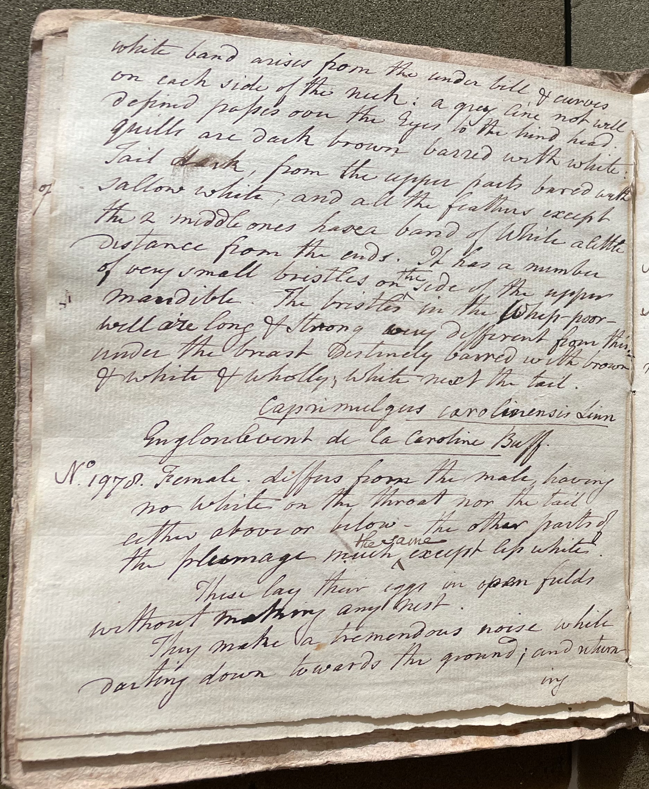 white band arises from the under bill & curves
on each side of the neck: a grey line not well
defined passes over the Eyes to the hind head.
quills are dark brown barred with white.
Tail dark, from the upper parts bared with
sallow white, and all the feathers except
the 2 middle ones have a band of White a little
distance from the ends. It has a number
of very small bristles on the side of the upper
mandible. The bristles in the Whip-poor-
will are long & Strong very different from this.
under the breast Distinctly barred with brown
& white & wholly white next the tail.
Caprimulgus carolinensis Linn
Englonlevent de la Caroline Buff.
No. 1978. Female. differs from the male, having
no white on the throat nor the tail
either above or below - the other parts of
the plumage much the same except less white.
These lay their eggs in open fields
without making any nest.
They make a tremendous noise while
darting down towards the ground; and return-
ing